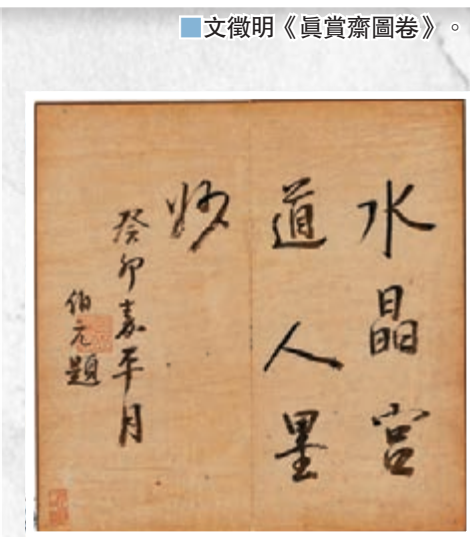 ■文徵明《眞賞齋圖卷》。
水晶宮
道人墨
妙
癸卯嘉平月
伯元題